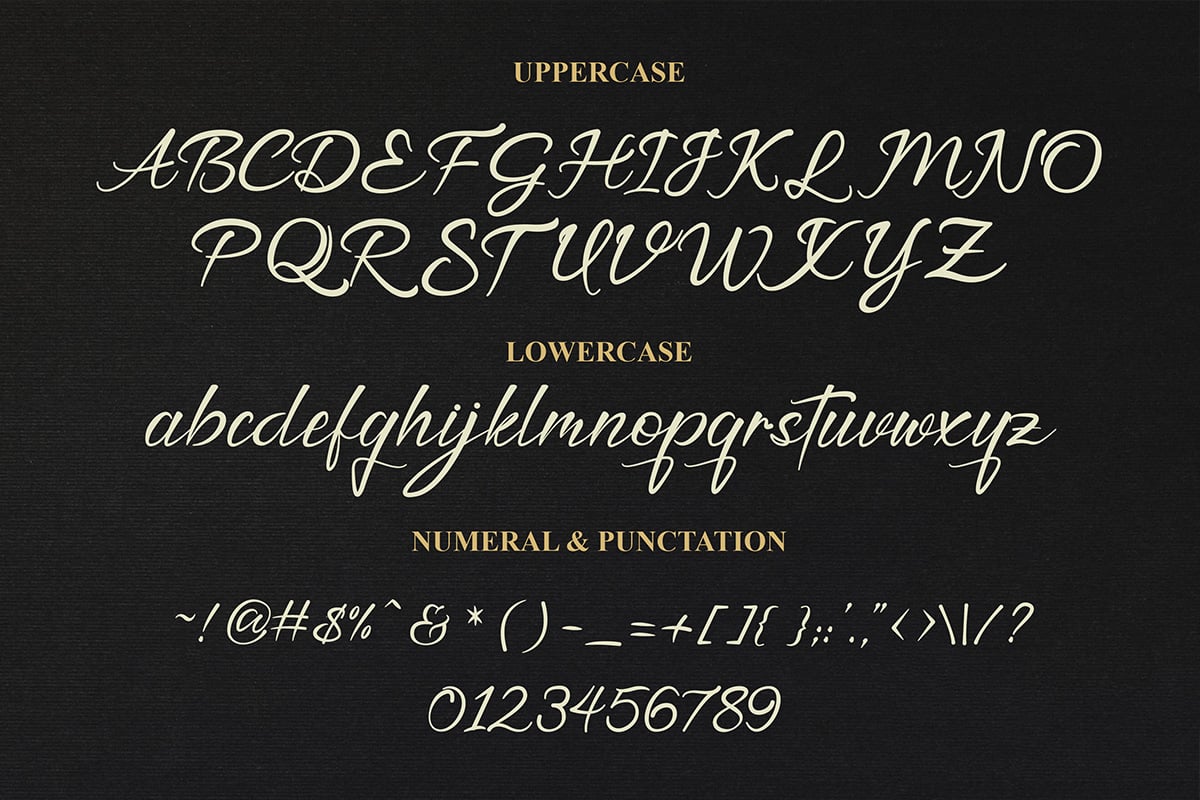 UPPERCASE
ABCDEFGHIJKLMNO
PQRSTUVWXYZ
LOWERCASE
abcdefghijklmnopqrstuvwxyz
NUMERAL & PUNCTATION
~!@#$%^&*()-_=+[]{};:'.,"<>\|/?
0123456789